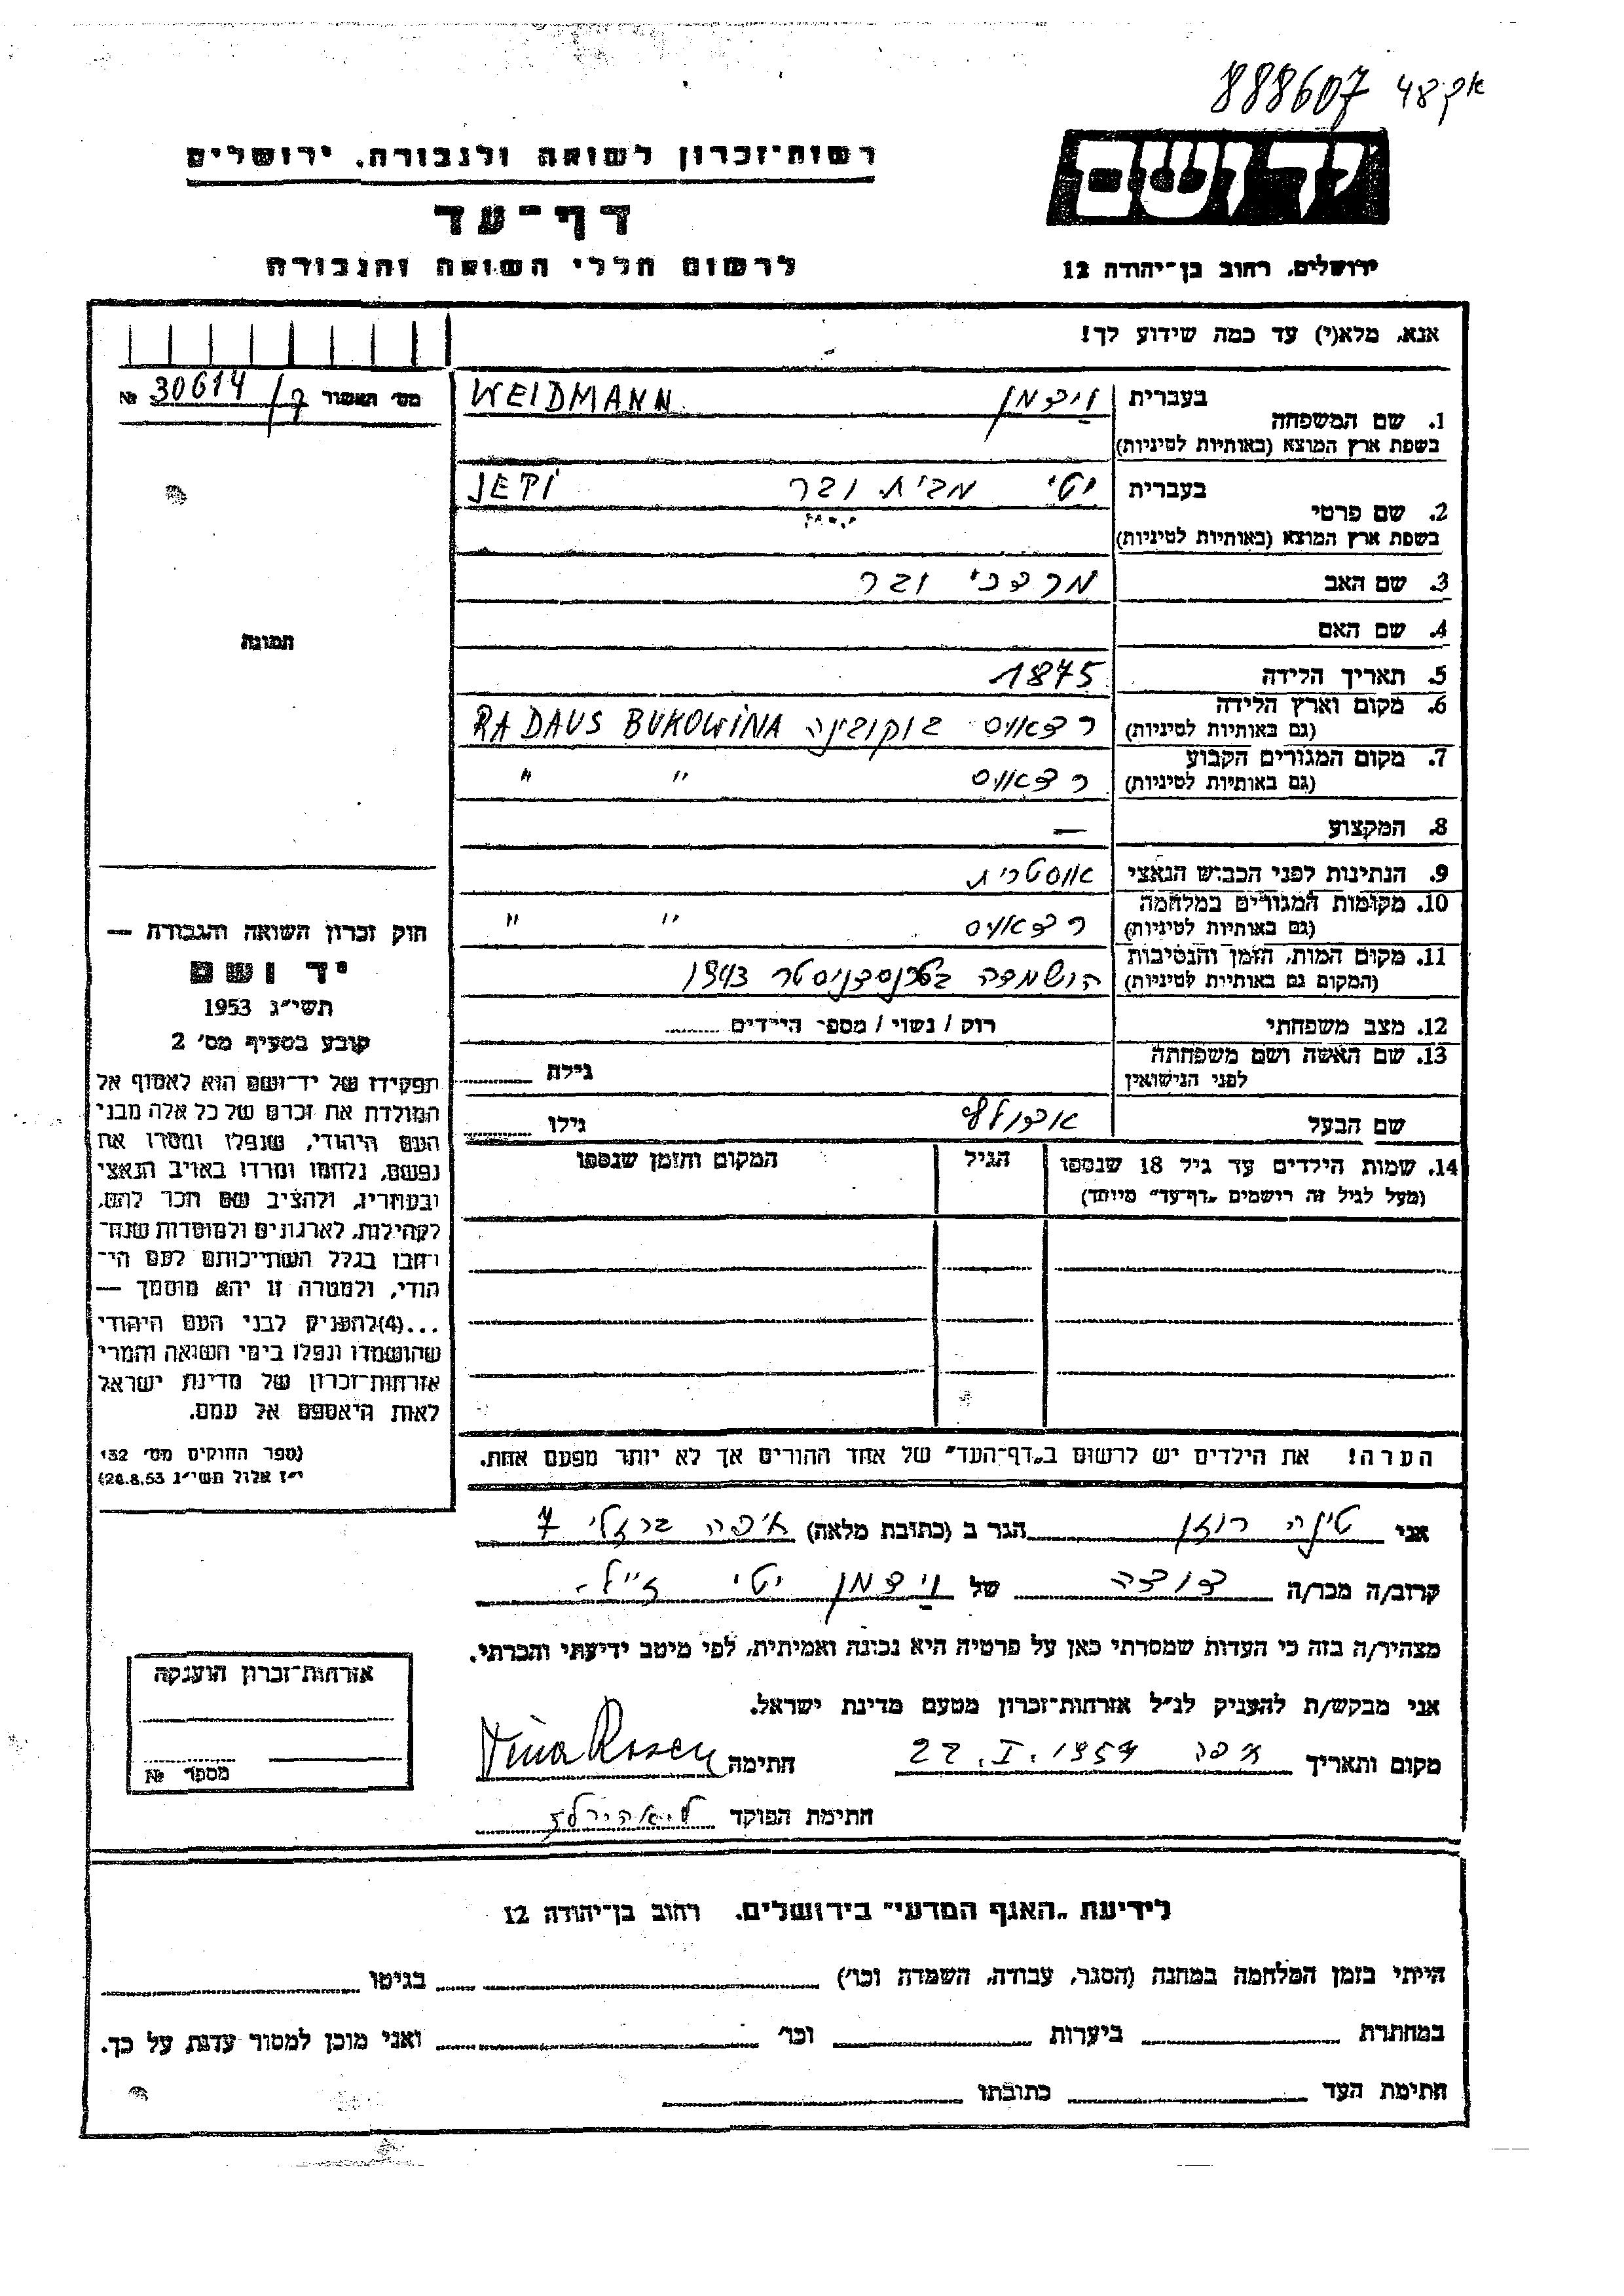 888607 אק 48
יד ושם
רשות־זכרון לשואה ולגבורה, ירושלים
דף־עד
לרשום חללי השואה והגבורה
ירושלים, רחוב בן־יהודה 12
אנא, מלא(י) עד כמה שידוע לך!
מס׳ האשור 30614 №
1. שם המשפחה
בעברית וידמן WEIDMANN
בשפת ארץ המוצא (באותיות לטיניות)
2. שם פרטי
בעברית יטי מבית ובר JETI
בשפת ארץ המוצא (באותיות לטיניות)
3. שם האב מרדכי ובר
4. שם האם
5. תאריך הלידה 1875
6. מקום וארץ הלידה
(גם באותיות לטיניות) רדאוס בוקובינה RADAUS BUKOWINA
7. מקום המגורים הקבוע
(גם באותיות לטיניות) רדאוס " "
8. המקצוע —
9. הנתינות לפני הכבוש הנאצי אוסטרית
10. מקומות המגורים במלחמה
(גם באותיות לטיניות) רדאוס " "
11. מקום המות, הזמן והנסיבות
(המקום גם באותיות לטיניות) הושמדה בטרנסדניסטר 1943
12. מצב משפחתי רווק / נשוי / מספר הילדים
13. שם האשה ושם משפחתה
לפני הנישואין גילה
שם הבעל אדולף גילו
14. שמות הילדים עד גיל 18 שנספו הגיל המקום והזמן שנספו
(מעל לגיל זה רושמים „דף־עד" מיוחד)
הערה! את הילדים יש לרשום ב„דף־העד" של אחד ההורים אך לא יותר מפעם אחת.
תמונה
חוק זכרון השואה והגבורה —
יד ושם
תשי״ג 1953
קובע בסעיף מס׳ 2
תפקידו של יד־ושם הוא לאסוף אל
המולדת את זכרם של כל אלה מבני
העם היהודי, שנפלו ומסרו את
נפשם, נלחמו ומרדו באויב הנאצי
ובעוזריו, ולהציב שם וזכר להם,
לקהילות, לארגונים ולמוסדות שנח־
רבו בגלל השתייכותם לעם הי־
הודי, ולמטרה זו יהא מוסמך —
...(4) להעניק לבני העם היהודי
שהושמדו ונפלו בימי השואה והמרי
אזרחות־זכרון של מדינת ישראל
לאות היאספם אל עמם.
(ספר החוקים מס׳ 132
י״ז אלול תשי״ג 28.8.53)
אני טינה רוזן הגר ב (כתובת מלאה) חיפה ברזילי 7
קרוב/ה מכר/ה דודה של וידמן יטי ז״ל
מצהיר/ה בזה כי העדות שמסרתי כאן על פרטיה היא נכונה ואמיתית, לפי מיטב ידיעתי והכרתי.
אני מבקש/ת להעניק לנ״ל אזרחות־זכרון מטעם מדינת ישראל.
מקום ותאריך חיפה 22.I.1957 חתימה Tina Rosen
חתימת הפוקד
אזרחות־זכרון הוענקה
מספר №
לידיעת „האגף המדעי" בירושלים. רחוב בן־יהודה 12
הייתי בזמן המלחמה במחנה (הסגר, עבודה, השמדה וכו׳) בגיטו
במחתרת ביערות וכו׳ ואני מוכן למסור עדות על כך.
חתימת העד כתובתו